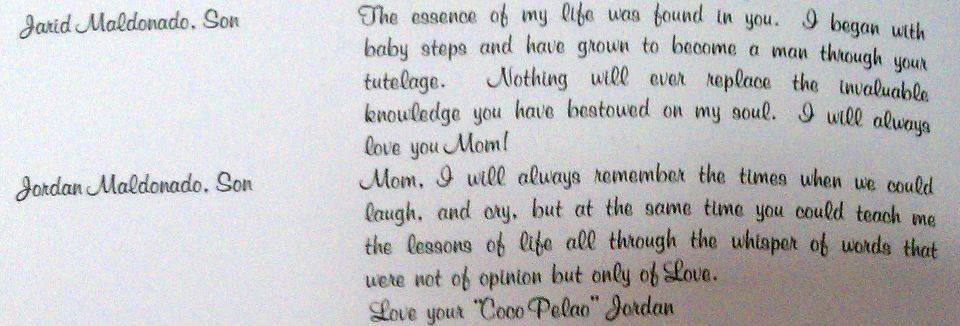 Jarid Maldonado, Son The essence of my life was found in you. I began with
baby steps and have grown to become a man through your
tutelage. Nothing will ever replace the invaluable
knowledge you have bestowed on my soul. I will always
love you Mom!
Jordan Maldonado, Son Mom, I will always remember the times when we could
laugh, and cry, but at the same time you could teach me
the lessons of life all through the whisper of words that
were not of opinion but only of Love.
Love your "Coco Pelao" Jordan